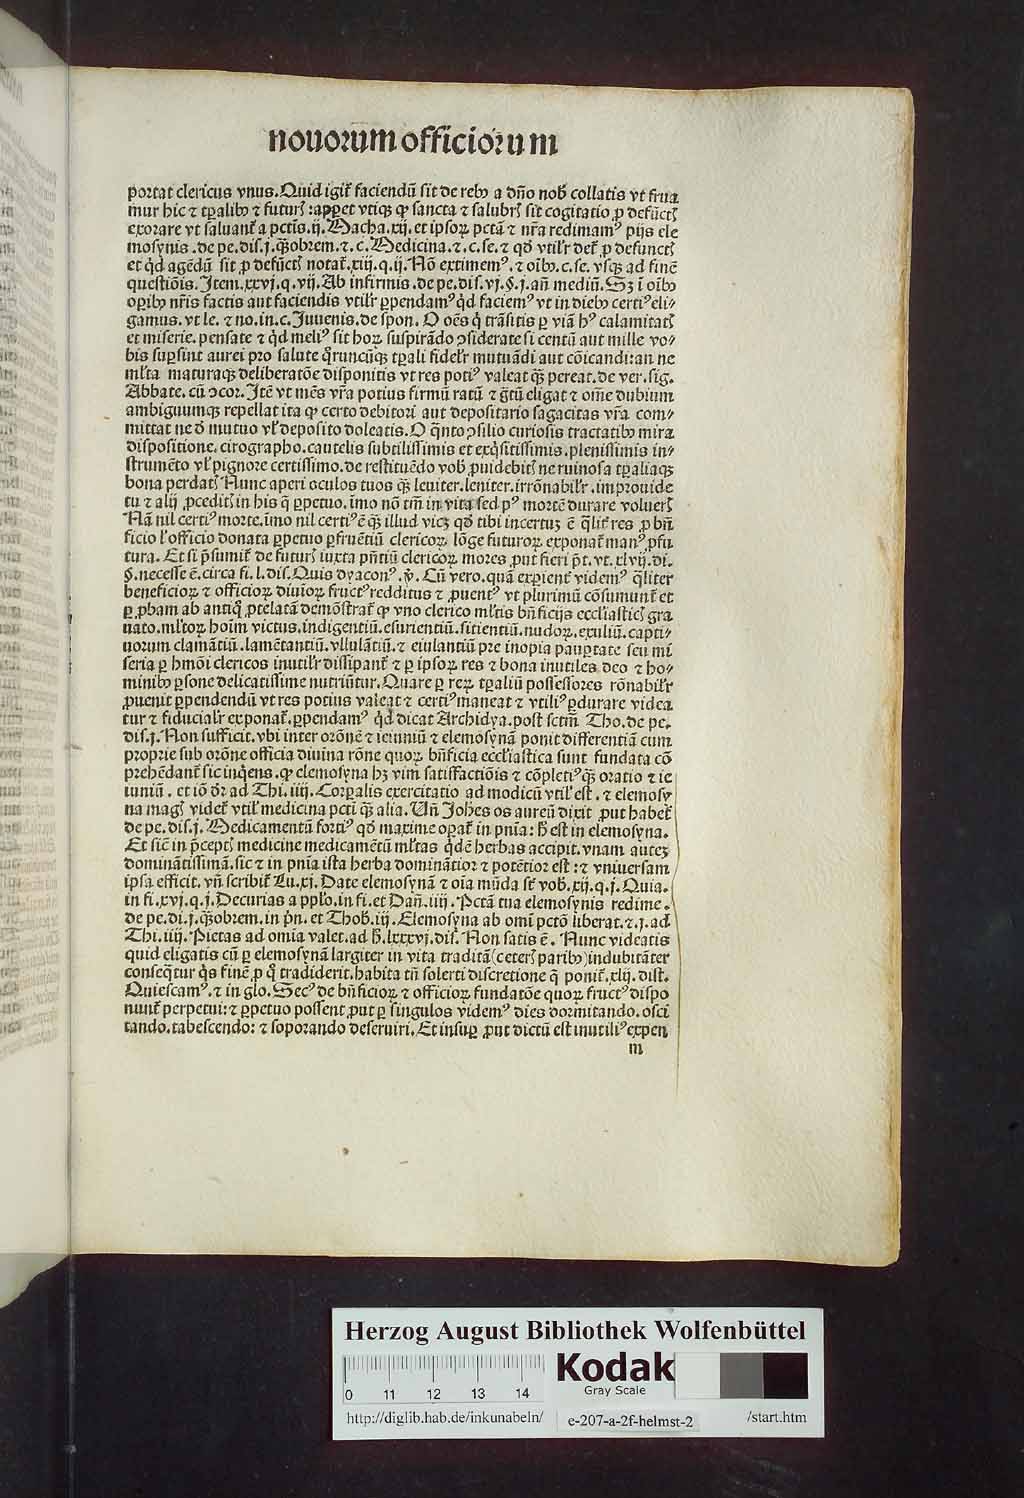 novorum officiorum
portat clericus vnus. Quid igit᷑ faciendū sit de rebꝰ a dño nob̄ collatis vt frua
mur hic ⁊ tꝑalibꝰ ⁊ futuꝝ: apꝑet vtiqꝫ ꝙ sancta ⁊ salubꝝ sit cogitatio ꝓ defūctꝭ
exorare vt saluant᷑ a pctīs. ij. Macha. xij. et ipsoꝝ pctā ⁊ nr̄a redimamꝰ pijs ele
mosynis. de pe. dis. j. qᷓobrem. ⁊. c. Medicina. ⁊. c. se. ⁊ qđ vtilr̄ det᷑ ꝓ defunctꝭ
et qͥd agēdū sit ꝓ defūctꝭ notat᷑. xiij. q. ij. Nō extimemꝰ. ⁊ oībꝰ. c. se. vsqꝫ ad finē
questiōis. Item. xxvj. q. vij. Ab infirmis. de pe. dis. vj. §. j. añ mediū. Sꝫ i oībꝰ
oꝑibꝰ nr̄is factis aut faciendis vtilr̄ ꝑpendamꝰ qͥd faciemꝰ vt in diebꝰ certiꝰ eli⸗
gamus. vt le. ⁊ no. in. c. Juuenis. de spon. O oēs qͥ trāsitis ꝑ viā hꝰ calamitatꝭ
et miserie. pensate ⁊ qͥd meliꝰ sit hoꝝ suspirādo ꝯsiderate si centū aut mille vo⸗
bis suꝑsint aurei pro salute qͦruncūqꝫ tꝑali fidelr̄ mutuādi aut cōicandi: an ne
ml̄ta maturaqꝫ deliberatōe disponitis vt res potiꝰ valeat qᷓꝫ pereat. de ver. sig.
Abbate. cū ꝯcor. Itē vt mēs vr̄a potius firmū ratū ⁊ g̃tū eligat ⁊ om̄e dubium
ambiguumqꝫ repellat ita ꝙ certo debitori aut depositario sagacitas vr̄a com⸗
mittat ne đ mutuo vl᷑ deposito doleatis. O qͣnto ꝯsilio curiosis tractatibꝰ mira
dispositione. cirographo. cautelis subtilissimis et exqͥsitissimis. plenissimis in⸗
strumēto vl᷑ pignore certissimo. de restituēdo vob̄ ꝓuidebitꝭ ne ruinosa tꝑaliaqꝫ
bona perdatꝭ Nunc aperi oculos tuos qᷓꝫ leuiter. leniter. irrōnabilr̄. improuide
tu ⁊ alij ꝓceditꝭ in his q̄ ꝑpetuo. īmo nō tm̄ in vita sed pꝰ mortē durare voluerꝭ
Nā nil certiꝰ morte. īmo nil certiꝰ ē qᷓꝫ illud vicꝫ qđ tibi incertuꝫ ē qͣlit᷑ res ꝓ bn̄
ficio l᷑ officio donata ꝑpetuo ꝑfruētiū clericoꝝ lōge futuroꝝ exponat᷑ manꝰ ꝓfu
tura. Et si p̄sumit᷑ de futuꝝ iuxta pn̄tiū clericoꝝ mores ꝓut fieri p̄t. vt. xlvij. di.
§. necesse ē. circa fi. l. dis. Quis dyaconꝰ. ꝟ. Cū vero. quā exꝑient᷑ videmꝰ qͣliter
beneficioꝝ ⁊ officioꝝ diuioꝝ fructꝰ redditus ⁊ ꝓuentꝰ vt plurimū cōsumunt᷑ et
ꝑ ꝓbam ab antiqͥ ꝓtelatā demōstrat᷑ ꝙ vno clerico ml̄tis bn̄ficijs eccl̄iasticꝭ gra
uato. ml̄toꝝ hoīm victus. indigentiū. esurientiū. sitientiū. nudoꝝ. exuliū. capti⸗
uorum clamātiū. lamētantiū. vllulātiū. ⁊ eiulantiū pre inopia pauꝑtate seu mi
seria ꝑ hmōi clericos inutilr̄ dissipant᷑ ⁊ ꝑ ipsoꝝ res ⁊ bona inutiles deo ⁊ ho⸗
minibꝰ ꝑsone delicatissime nutriūtur. Quare ꝑ reꝝ tꝑaliū possessores rōnabilr̄
ꝓuenit ꝑpendendū vt res potius valeat ⁊ certiꝰ maneat ⁊ vtiliꝰ ꝑdurare videa
tur ⁊ fiducialr̄ exponat᷑. ꝑpendamꝰ qͥd dicat Archidya. post sctm̄ Tho. de pe.
dis. j. Non sufficit. vbi inter orōnē ⁊ ieiuniū ⁊ elemosynā ponit differentiā cum
proprie sub orōne officia diuina rōne quoꝝ bn̄ficia eccl̄iastica sunt fundata cō
prehēdant᷑ sic inqͥens. ꝙ elemosyna hꝫ vim satisfactiōis ⁊ cōpletiꝰ qᷓꝫ oratio ⁊ ie
iuniū. et iō dr̄ ad Thi. iiij. Corꝑalis exercitatio ad modicū vtil᷑ est. ⁊ elemosy
na magꝭ videt᷑ vtil᷑ medicina pcti qᷓꝫ alia. Un̄ Joh̄es os aureū dixit ꝓut habet᷑
de pe. dis. j. Medicamentū fortiꝰ qđ maxime oꝑat᷑ in pn̄ia: h̄ est in elemosyna.
Et sic̄ in p̄ceptꝭ medicine medicamētū ml̄tas qͥdē herbas accipit. vnam auteꝫ
dominātissimā. sic ⁊ in pn̄ia ista herba dominātior ⁊ potētior est: ⁊ vniuersam
ipsa efficit. vn̄ scribit᷑ Lu. xj. Date elemosynā ⁊ oīa mūda st̄ vob̄. xij. q. j. Quia.
in fi. xvj. q. j. Decurias a ppl̄o. in fi. et Dañ. iiij. Pctā tua elemosynis redime.
de pe. di. j. qᷓobrem. in p̄n. et Thob. iij. Elemosyna ab omī pctō liberat. ⁊. j. ad
Thi. iiij. Pietas ad omīa valet. ad h̄. lxxxvj. dis̄. Non satis ē. Nunc videatis
quid eligatis cū ꝑ elemosynā largiter in vita traditā (ceterꝭ paribꝰ) indubitāter
conseqͣtur qͥs finē ꝓ qͦ tradiderit. habita tn̄ solerti discretione q̄ ponit᷑. xlij. dist̄.
Quiescamꝰ. ⁊ in glo. Secꝰ de bn̄ficioꝝ ⁊ officioꝝ fundatōe quoꝝ fructꝰ dispo
nunt᷑ perpetui: ⁊ ꝑpetuo possent ꝓut ꝑ singulos videmꝰ dies dormitando. osci
tando. tabescendo: ⁊ soporando deseruiri. Et insuꝑ ꝓut dictū est inutiliꝰ expen
m
Herzog August Bibliothek Wolfenbüttel
Kodak
Gray Scale
0 11 12 13 14
http://diglib.hab.de/inkunabeln/ e-207-a-2f-helmst-2 /start.htm